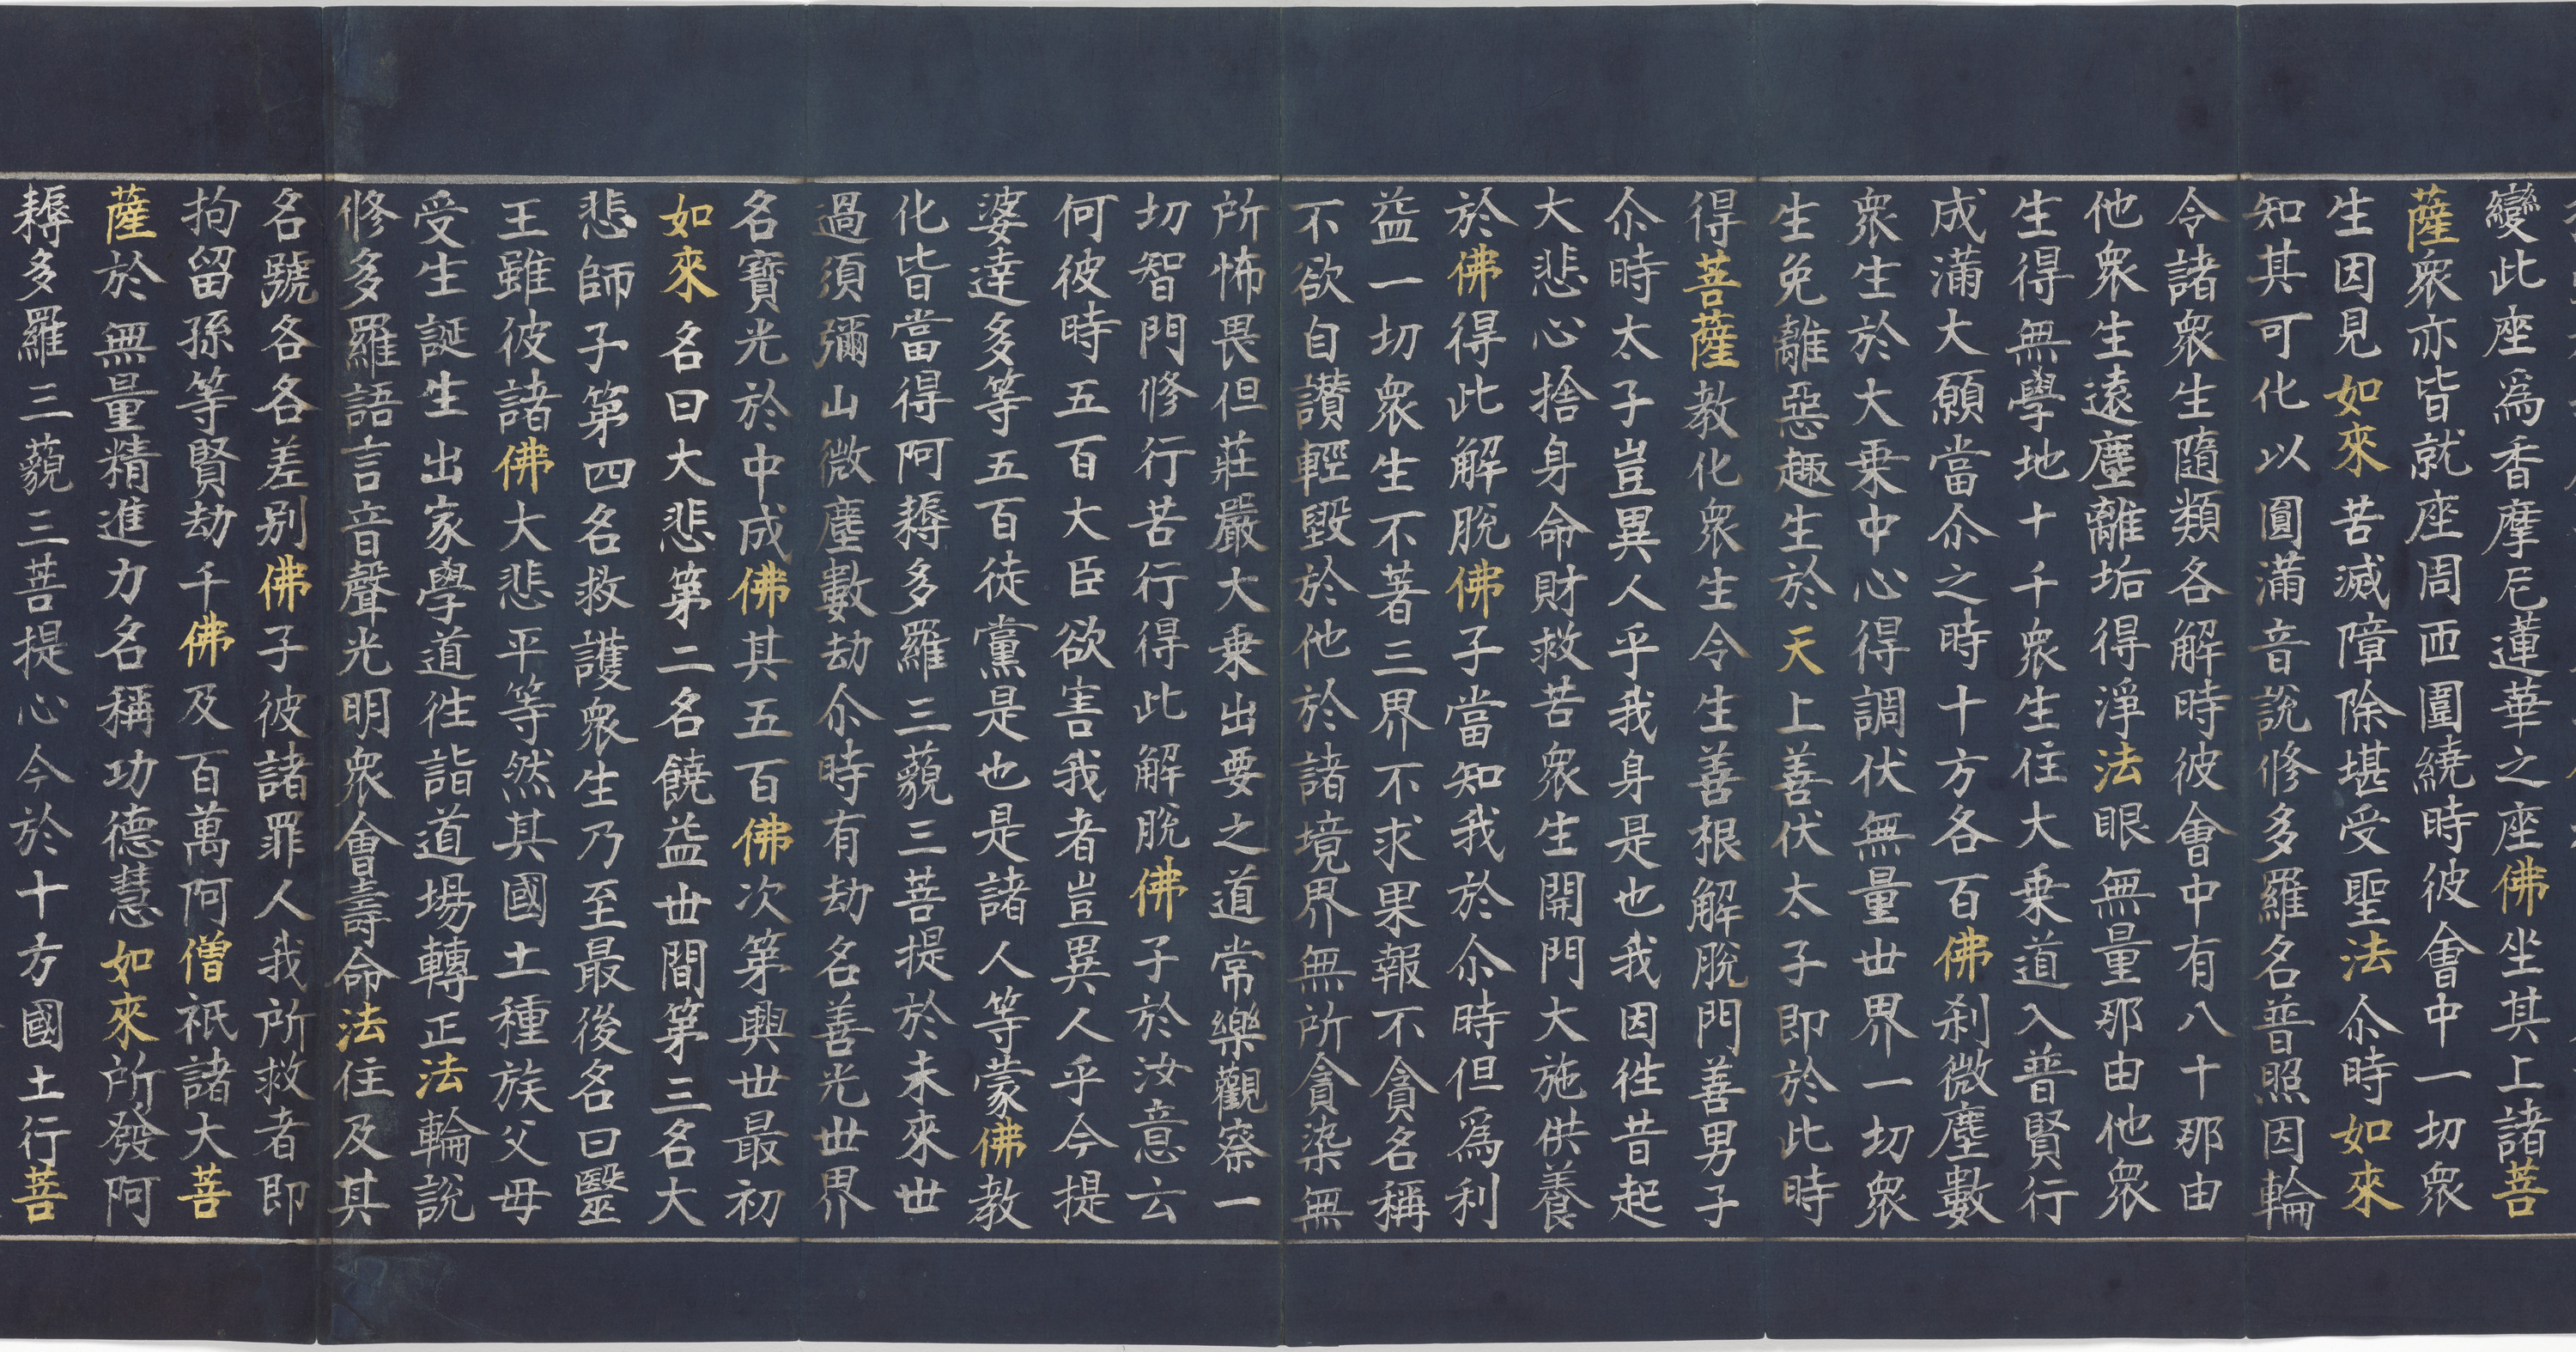 變此座爲香摩尼蓮華之座佛坐其上諸菩
薩衆亦皆就座周帀圍繞時彼會中一切衆
生因見如來苦滅障除堪受聖法尒時如來
知其可化以圓滿音說修多羅名普照因輪
令諸衆生隨類各解時彼會中有八十那由
他衆生遠塵離垢得淨法眼無量那由他衆
生得無學地十千衆生住大乗道入普賢行
成滿大願當尒之時十方各百佛刹微塵數
衆生於大乗中心得調伏無量世界一切衆
生免離惡趣生於天上善伏太子即於此時
得菩薩教化衆生令生善根解脫門善男子
尒時太子豈異人乎我身是也我因徃昔起
大悲心捨身命財救苦衆生開門大施供養
於佛得此解脫佛子當知我於尒時但爲利
益一切衆生不著三界不求果報不貪名稱
不欲自讃輕毀於他於諸境界無所貪染無
所怖畏但莊嚴大乗出要之道常樂觀察一
切智門修行苦行得此解脫佛子於汝意云
何彼時五百大臣欲害我者豈異人乎今提
婆達多等五百徒黨是也是諸人等蒙佛教
化皆當得阿耨多羅三藐三菩提於未來世
過須彌山微塵數劫尒時有劫名善光世界
名寶光於中成佛其五百佛次第興世最初
如來名曰大悲第二名饒益世間第三名大
悲師子第四名救護衆生乃至最後名曰毉
王雖彼諸佛大悲平等然其國土種族父母
受生誕生出家學道徃詣道場轉正法輪說
修多羅語言音聲光明衆會壽命法住及其
名號各各差别佛子彼諸罪人我所救者即
拘留孫等賢劫千佛及百萬阿僧祇諸大菩
薩於無量精進力名稱功德慧如來所發阿
耨多羅三藐三菩提心今於十方國土行菩